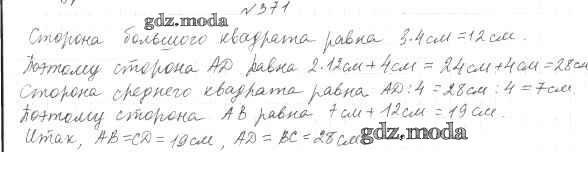 №371
gdz.moda
Сторона большого квадрата равна 3·4см=12см.
Поэтому сторона AD равна 2·12см+4см=24см+4см=28см
Сторона среднего квадрата равна AD:4=28см:4=7см.
Поэтому сторона AB равна 7см+12см=19см.
Итак, AB=CD=19см, AD=BC=28см
gdz.moda